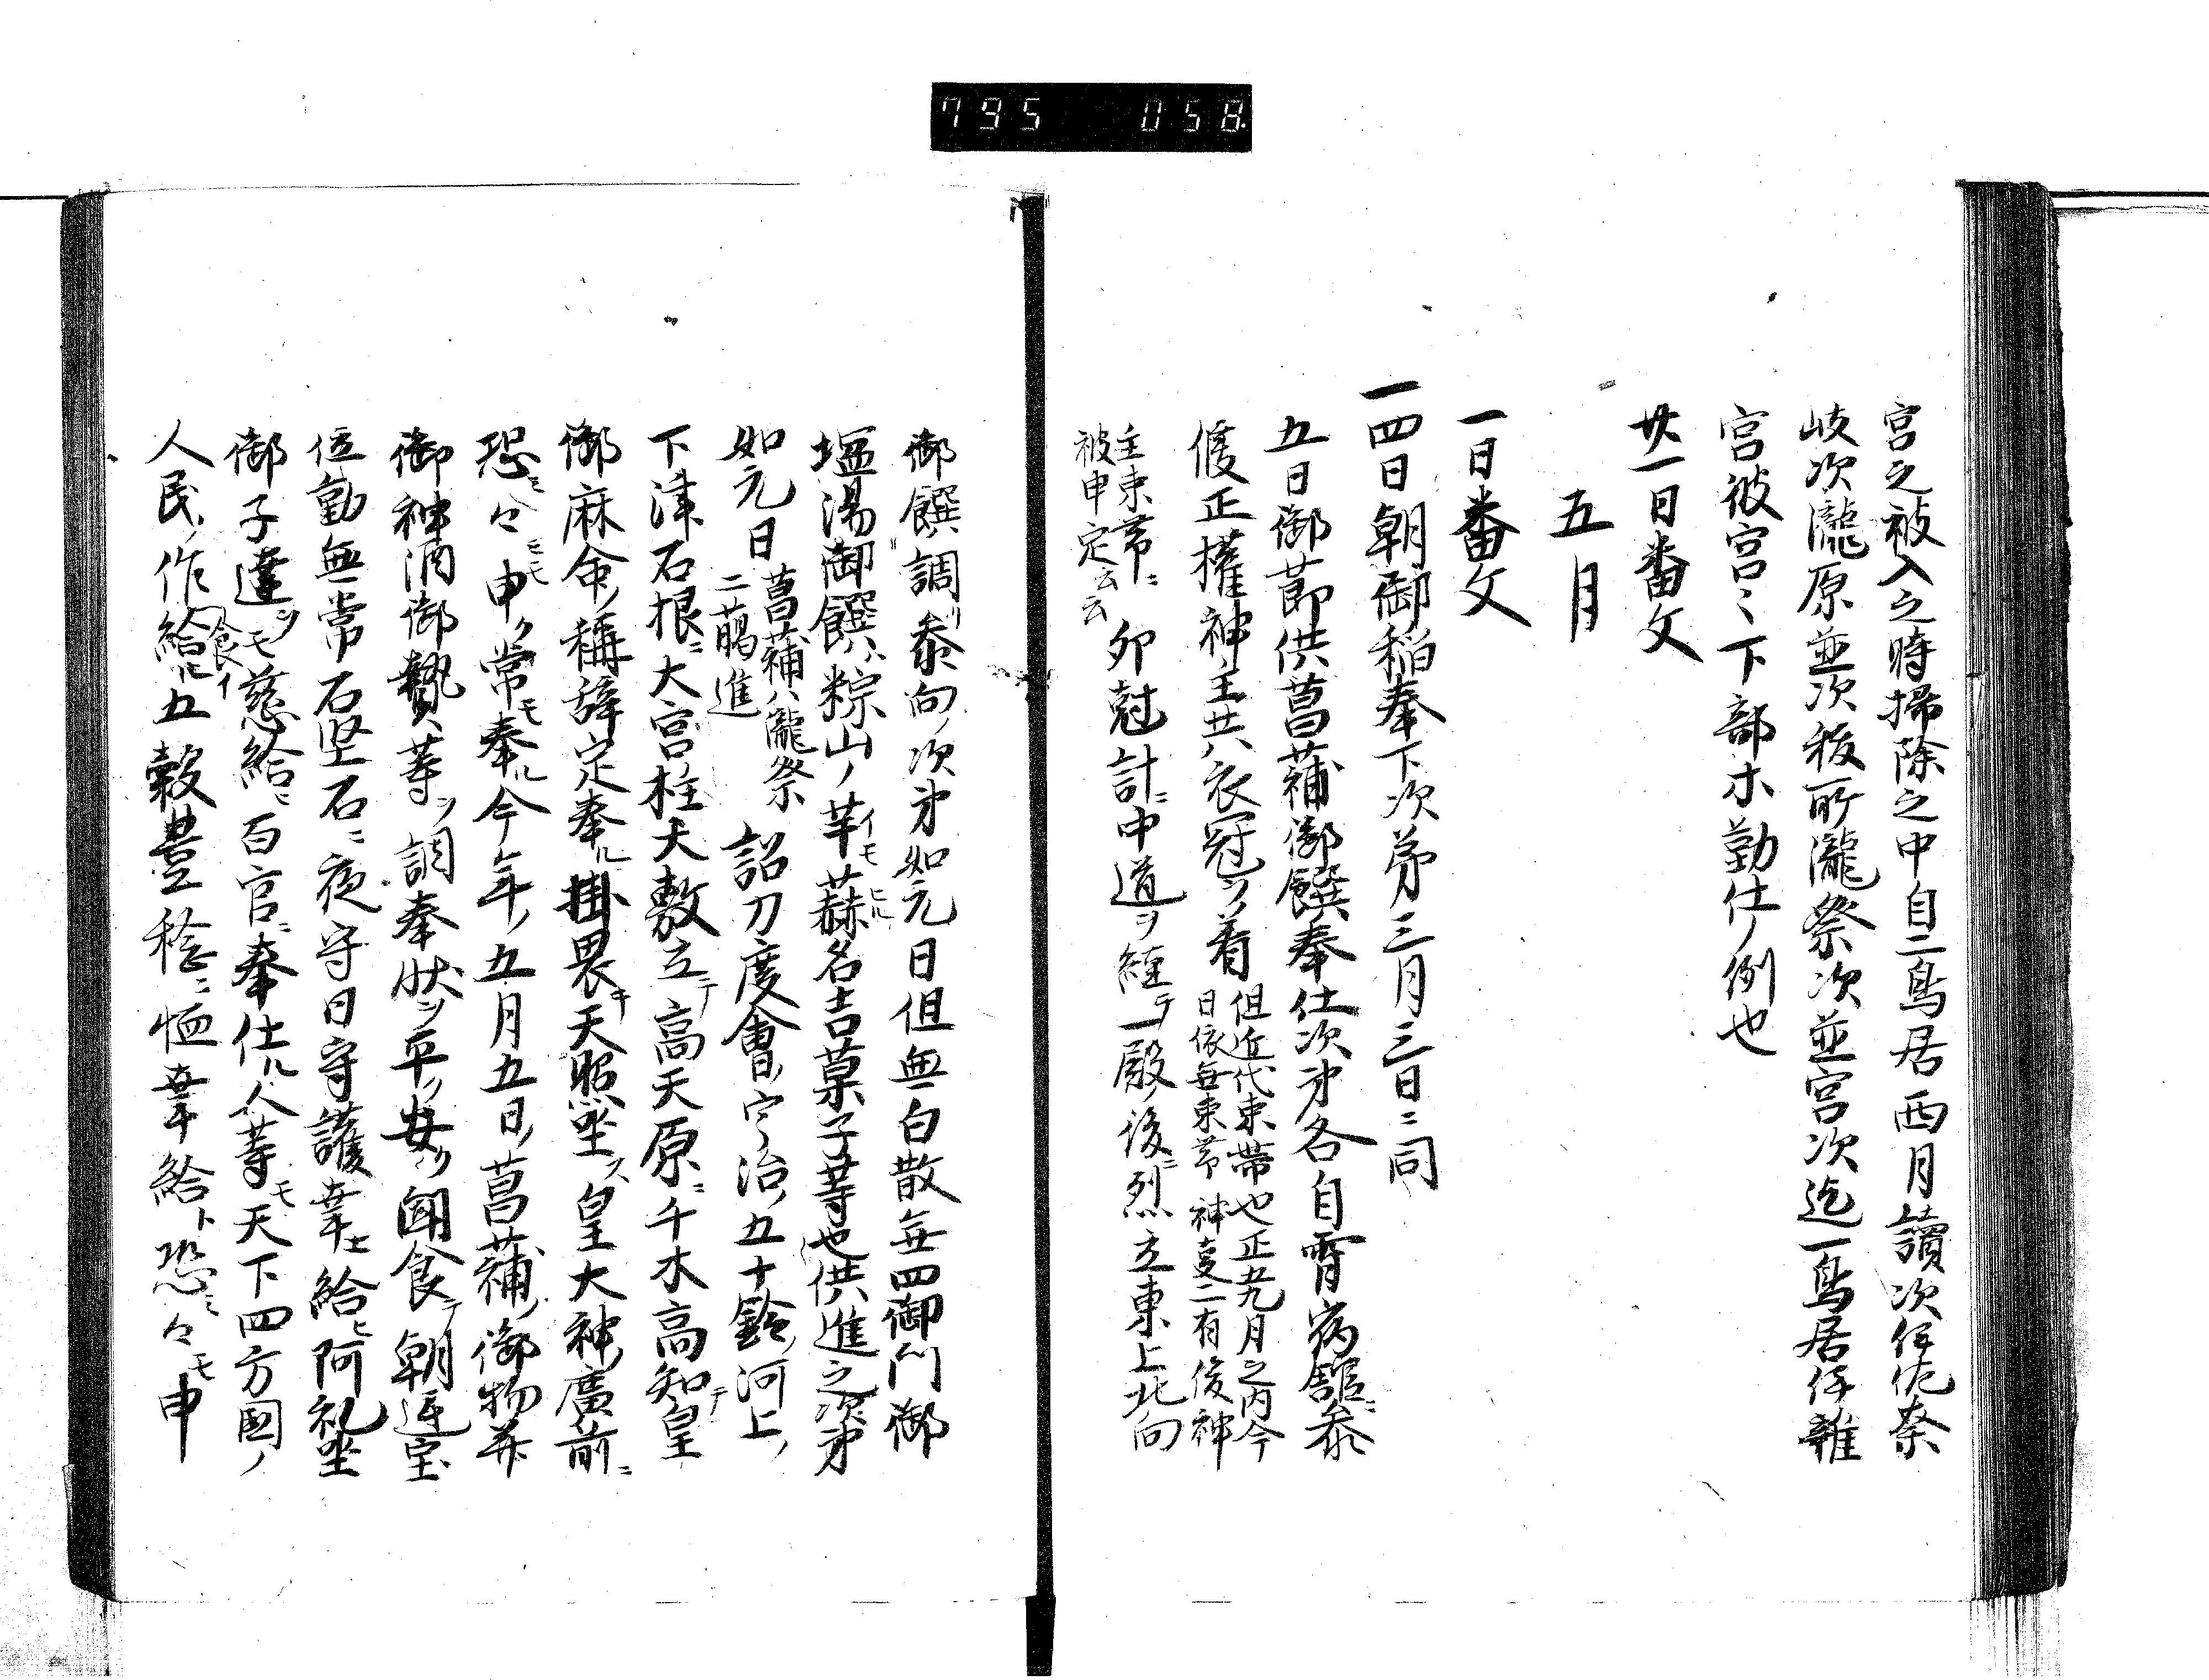 795 058
宮之被入之時掃除之中自二鳥居西月讀次伊佐奈
岐次瀧原並次後所瀧祭次並宮次迄一鳥居仔雜
宮彼宮ミ下部木勤仕ノ例也
廿一日番文
五月
一日番文
一四日朝御稻奉下次第三月三日ニ同
五日御節供菖蒲御饌奉仕次第各自宵病舘ニ参
候正權神主共ハ衣冠ヲ着
但近代束帶也正五九月之内今
日依無束帶神夏二有後神
主束帶ニ
被申定云云
卯尅計ニ中道ヲ經テ一殿ノ後ニ烈立東上北向
御饌調リ参向ノ次第如元日但無白散無四御門御
塩湯御饌ハ粽山ノ芋イモ蒜ヒル名吉菓子等也供進之次第
如元日
菖蒲ハ瀧祭
二鵤進
詔刀度會ノ宇治ノ五十鈴ノ河上ノ
下津石根ニ大宮柱太敷立テ高天原ニ千木高知テ皇
御麻命ノ稱辞定奉ル掛畏キ天照坐ス皇大神ノ廣前ニ
恐ミ々モモ申ク常モ奉ル今年ノ五月五日ノ菖蒲ノ御物并
御神酒御贄等ヲ調奉状ヲ平ク安ク聞食テ朝廷宝
位動無常石堅石ニ夜守日守護幸ヒ給ヒ阿礼坐
御子達ヲモ慈給ニ百官ニ奉仕ル人等モ天下四方國ノ
人民ノ作給ル食イ五穀豊稔ニ恤幸給ト恐ミ々モ申